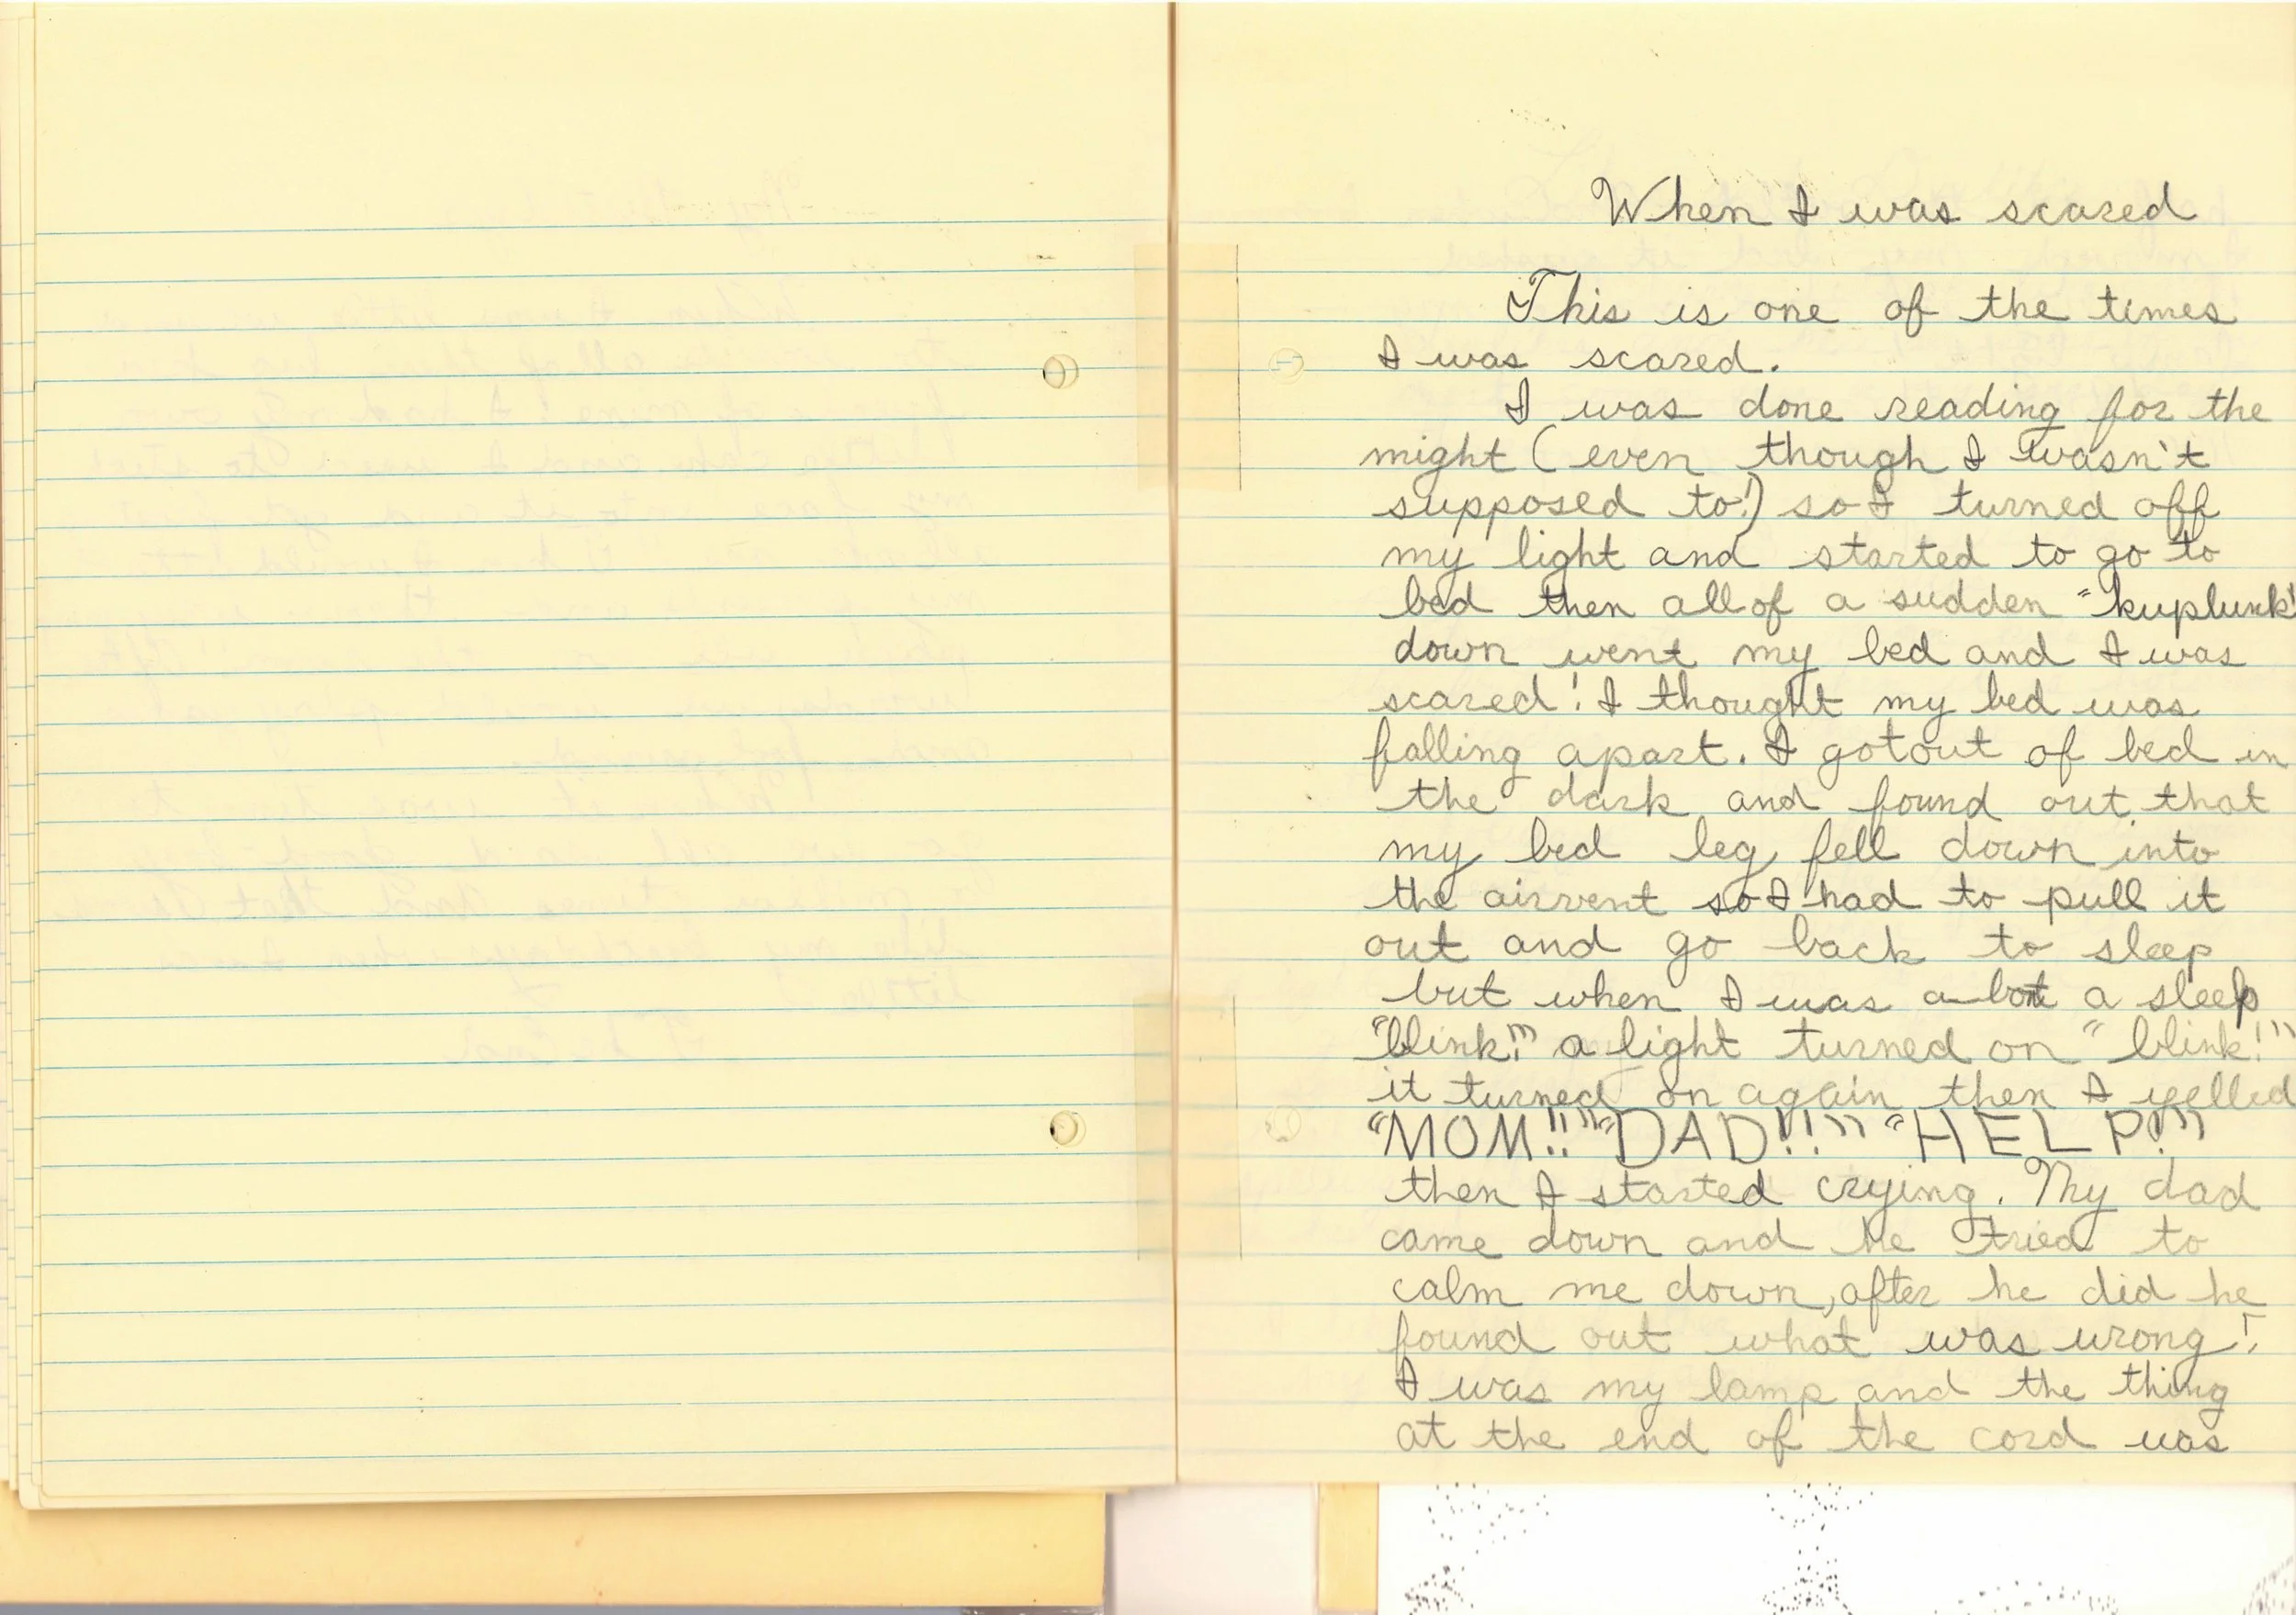 When I was scared
This is one of the times
I was scared.
I was done reading for the
might (even though I wasn't
supposed to!) so I turned off
my light and started to go to
bed then all of a sudden "kuplunk!
down went my bed and I was
scared! I thought my bed was
falling apart. I got out of bed in
the dark and found out that
my bed leg fell down into
the airvent so I had to pull it
out and go back to sleep
but when I was a bout a sleep
"blink!" a light turned on "blink!"
it turned on again then I yelled
"MOM!!" "DAD!!" "HELP!"
then I started crying. My dad
came down and he tried to
calm me down, after he did he
found out what was wrong!
I was my lamp and the thing
at the end of the cord was